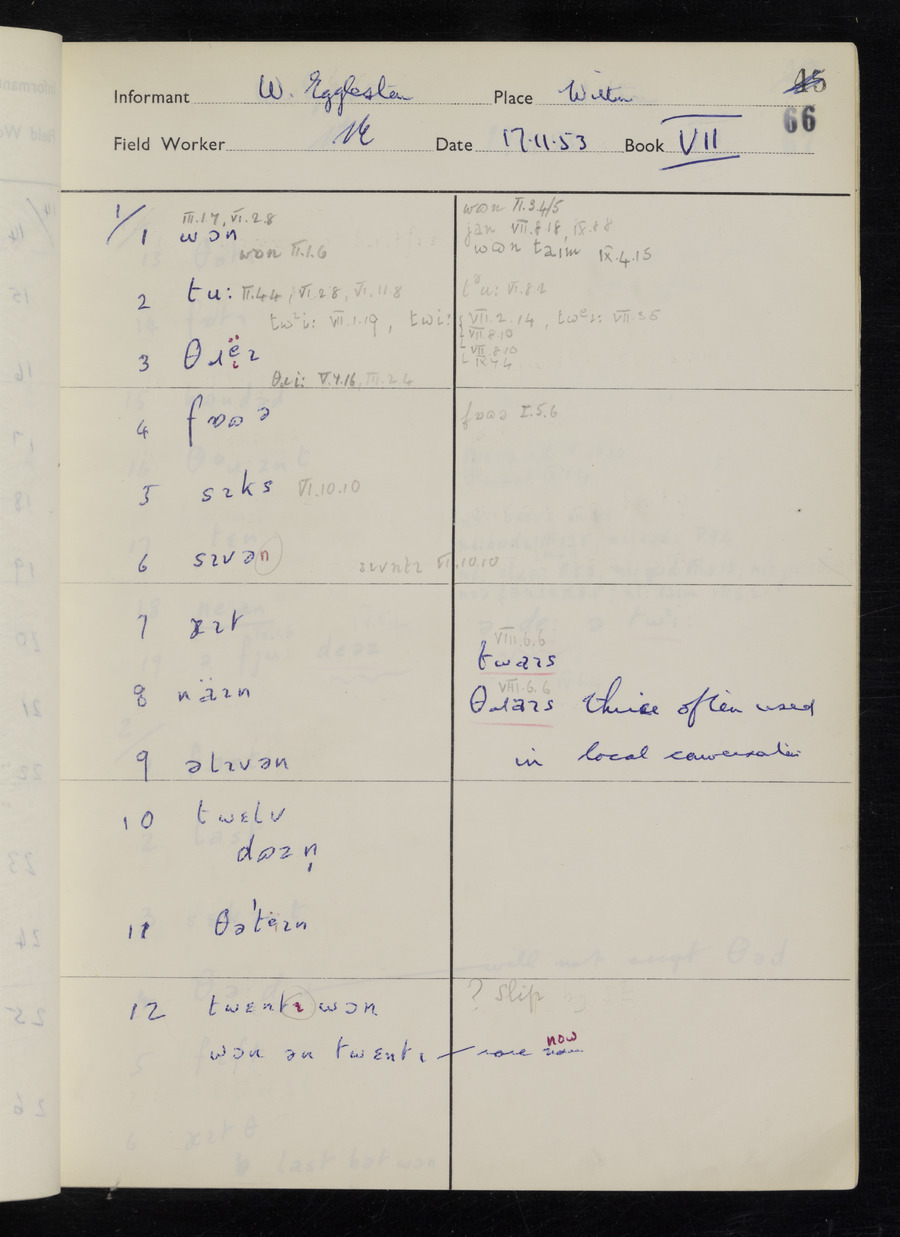 Informant W. Eggleston Place Wilton
66
Field Worker Date 17.11.53 Book VII
1/
III.1.7, VI.2.8
1 wɔn
wɒn II.1.6
wɒn II.3.4/5
jan VII.8.18, IX.8.8
wɒn taɪm IX.4.15
2 tu: II.4.4, VI.2.8, VI.11.8
tᵊu: VI.8.2
twᵊi: VII.1.19, twi: VII.2.14, twᵉɪ: VII.5.5
VII.8.10
3 θɹɪ
VII.8.10
IX.4.4
θɹi: V.7.16, III.2.4
4 fɒʊə
fɒʊə I.5.6
5 sɪks VI.10.10
6 sɪvən
sɪvntɪ VI.10.10
7 ɛɪt
VIII.6.6
twaɪs
8 näɪn
VIII.6.6
θɹaɪs thrice often used
in local conversation
9 əlɪvən
10 twɛlv
dɒzn̩
11 θə'tëɪn
12 twɛntɪ wɔn
? Slip
wɔn ən twɛntɪ — rare now